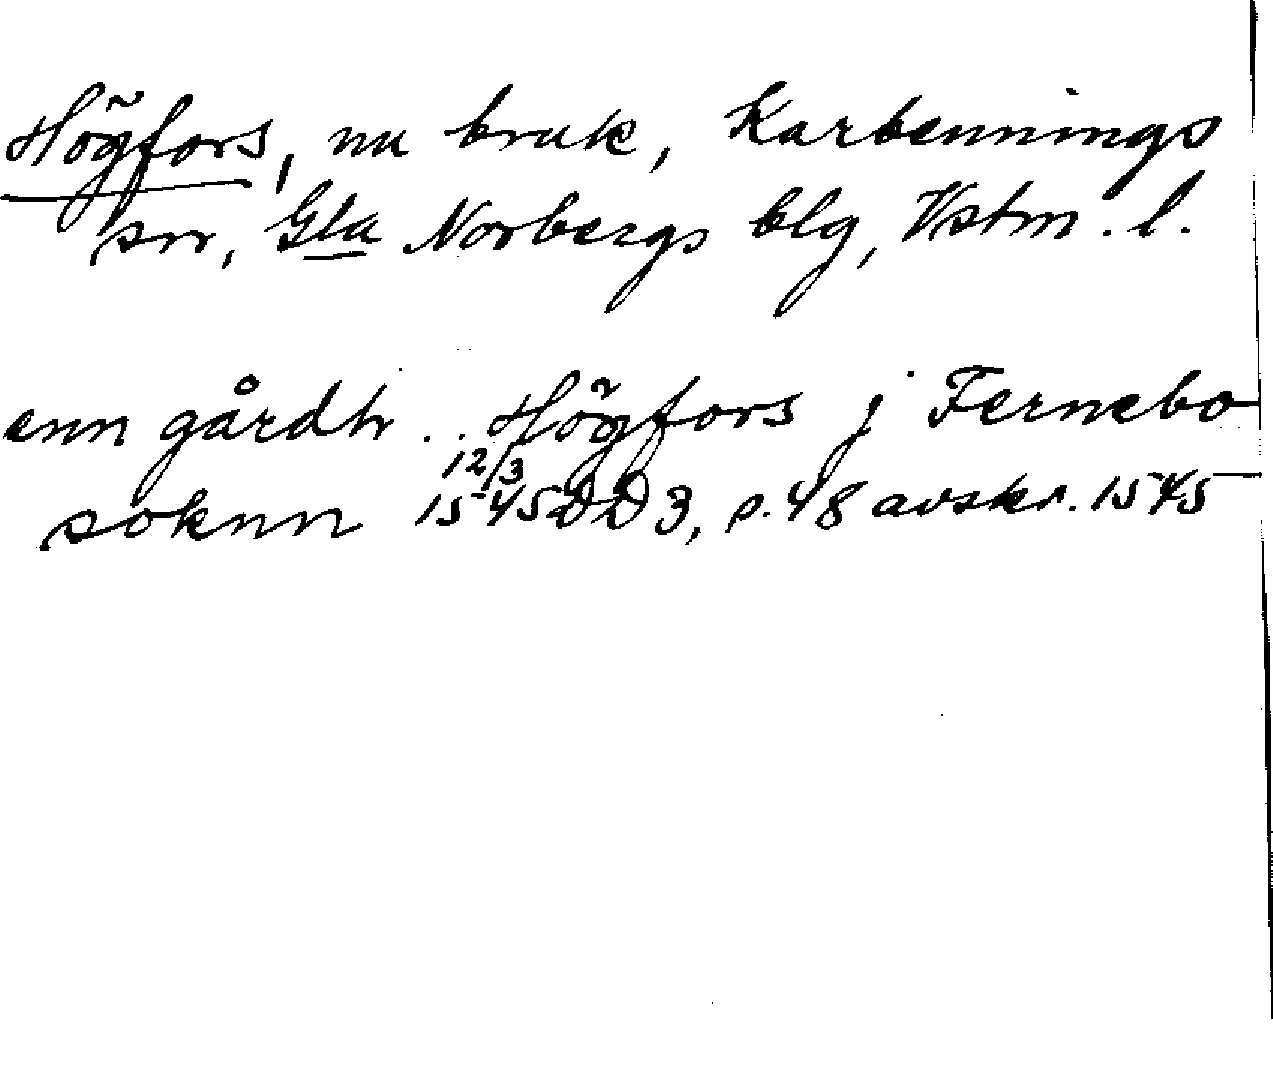 Högfors, nu bruk, Karbennings
sn, Gla Norbergs blg, Vstm. l.
enn gårdh .. Högfors j Fernebo
12/3
soknn 1545 DD 3, s. 48 avskr. 1545